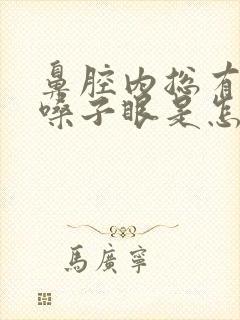 鼻腔内总有
嗓子眼是怎
馬廣寧